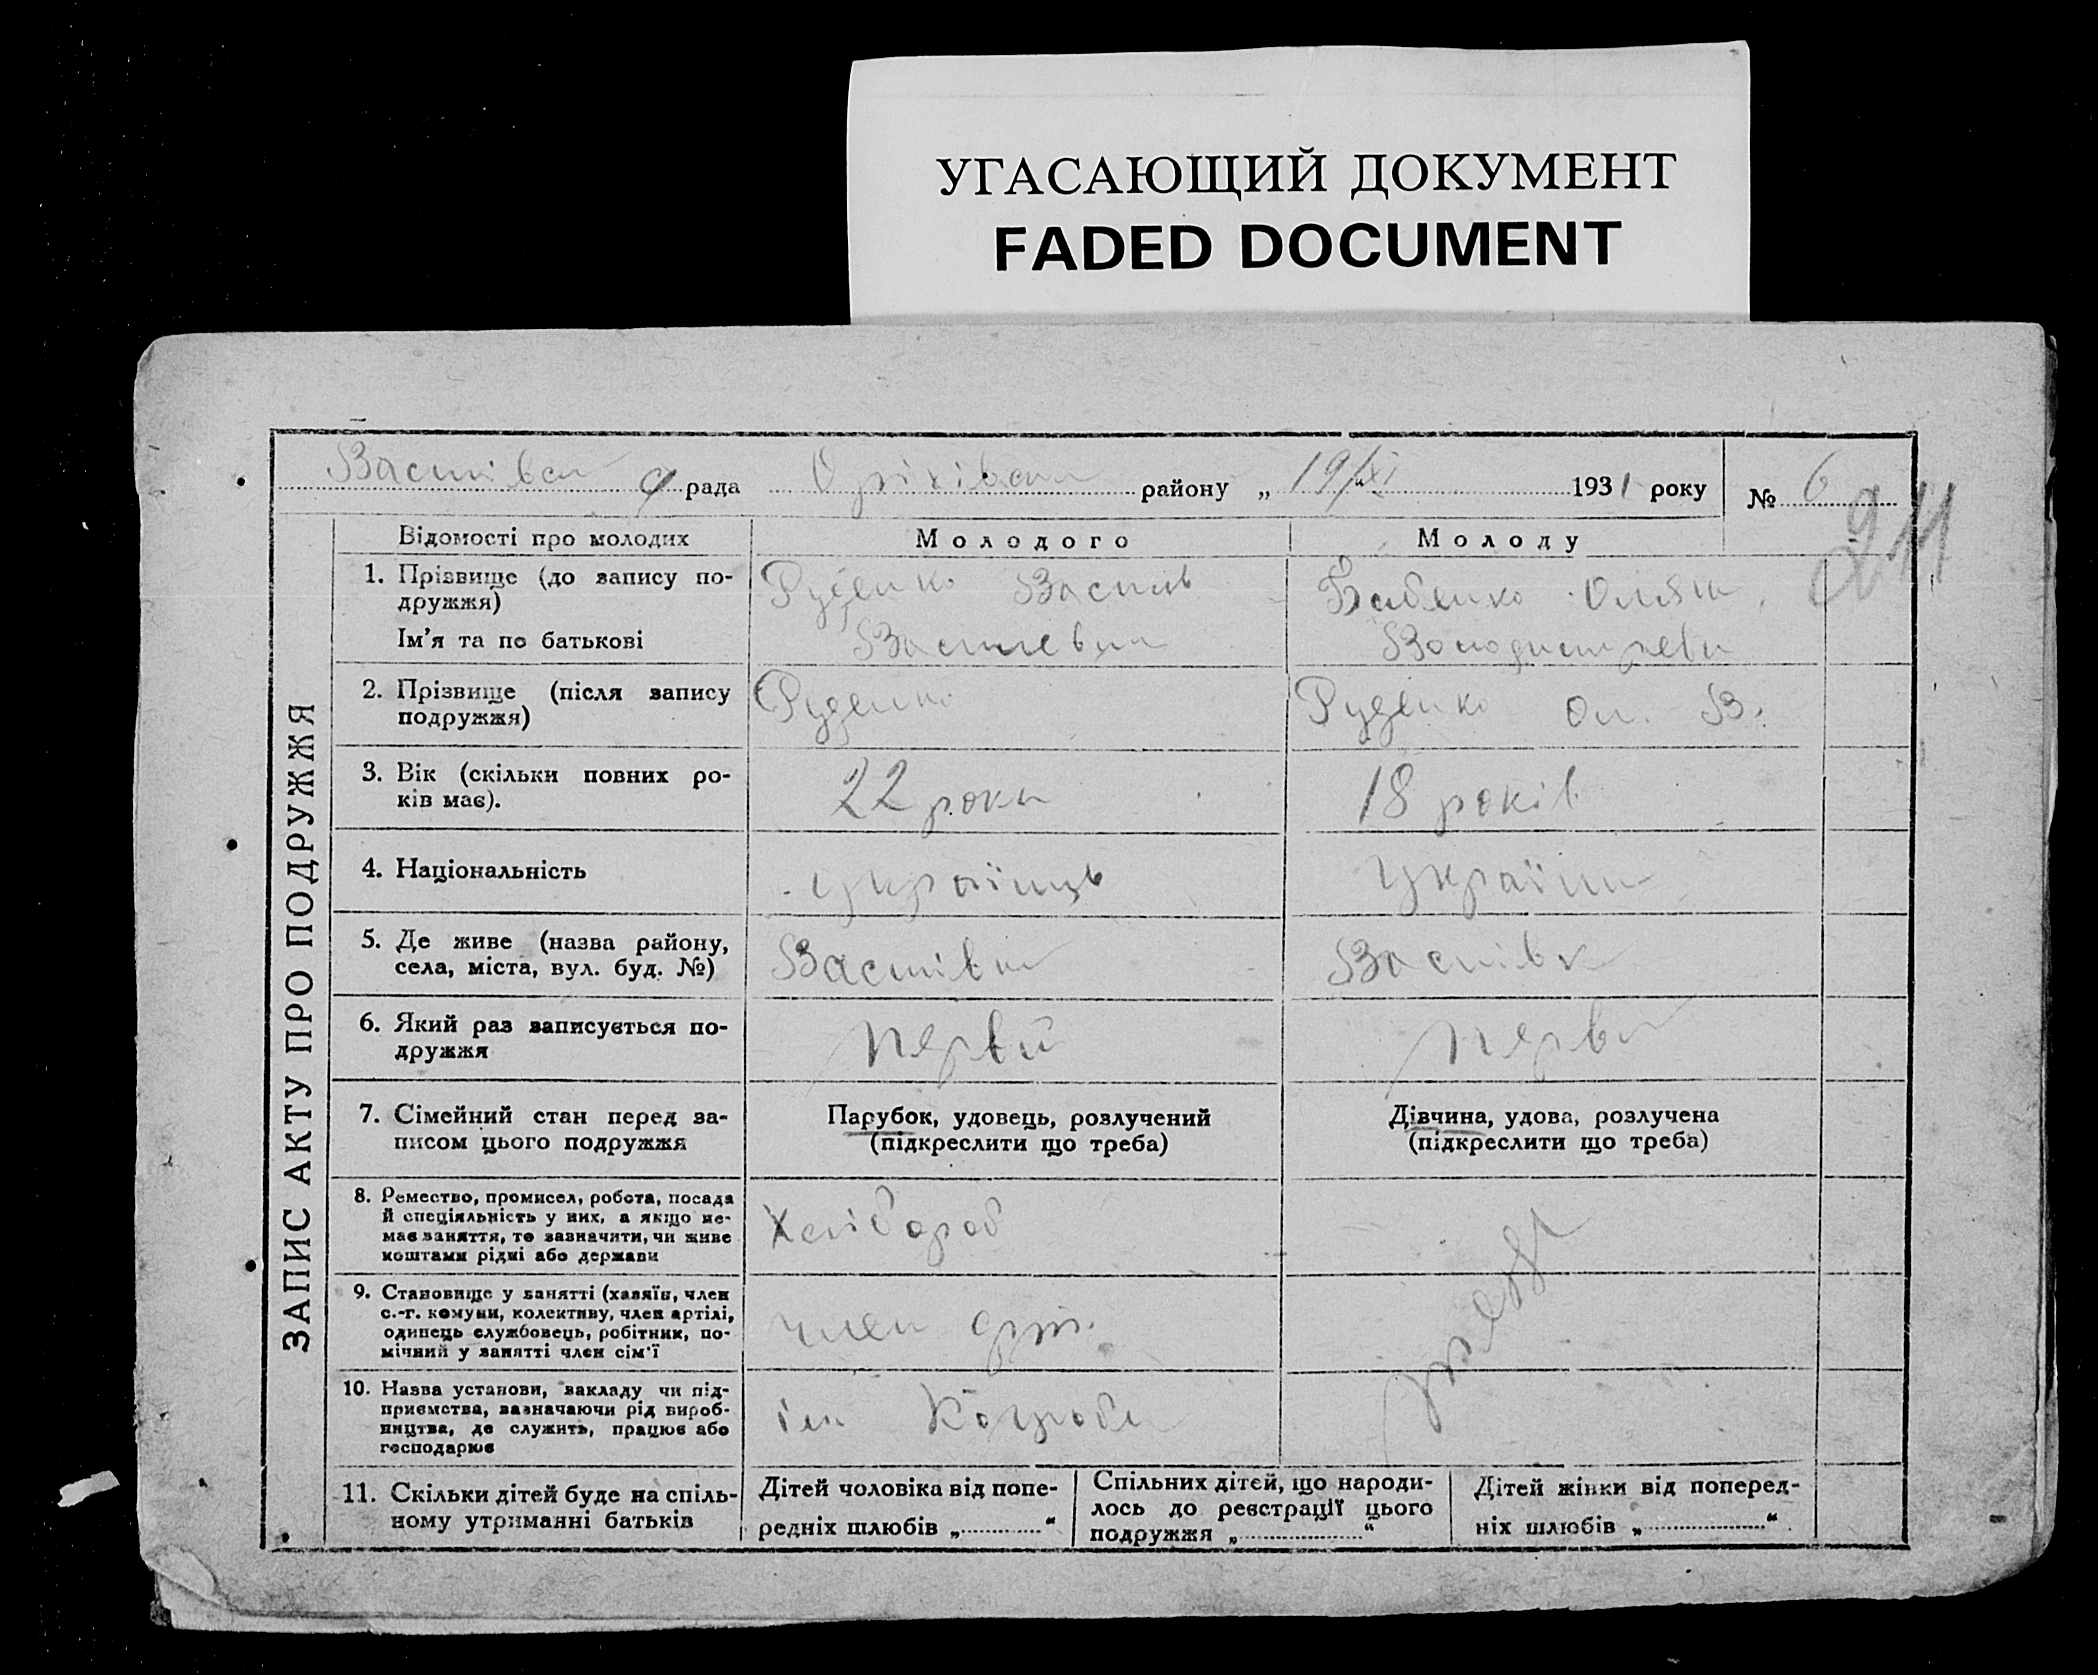 УГАСАЮЩИЙ ДОКУМЕНТ
FADED DOCUMENT
рада району „ 19/XI 1931 року № 6
211
ЗАПИС АКТУ ПРО ПОДРУЖЖЯ
Відомості про молодих Молодого Молоду
1. Прізвище (до запису по-
дружжя)
Руденко Василь
Бабенко
Ім’я та по батькові
2. Прізвище (після запису
подружжя)
Руденко
Руденко Ол. В.
3. Вік (скільки повних ро-
ків має).
22 роки
18 років
4. Національність
українець
5. Де живе (назва району,
села, міста, вул. буд. №)
6. Який раз записується по-
дружжя
7. Сімейний стан перед за-
писом цього подружжя
Парубок, удовець, розлучений
(підкреслити що треба)
Дівчина, удова, розлучена
(підкреслити що треба)
8. Ремество, промисел, робота, посада
й спеціяльність у них, а якщо не-
має заняття, то зазначити, чи живе
коштами рідні або держави
Хлібороб
9. Становище у занятті (хазяїн, член
с.-г. комуни, колективу, член артілі,
одинець службовець, робітник, по-
мічний у занятті член сім’ї
член арт.
10. Назва установи, закладу чи під-
приємства, зазначаючи рід вироб-
ництва, де служить, працює або
господарює
ім
11. Скільки дітей буде на спіль-
ному утриманні батьків
Дітей чоловіка від попе-
редніх шлюбів „ “
Спільних дітей, що народи-
лось до реєстрації цього
подружжя „ “
Дітей жінки від поперед-
ніх шлюбів „ “